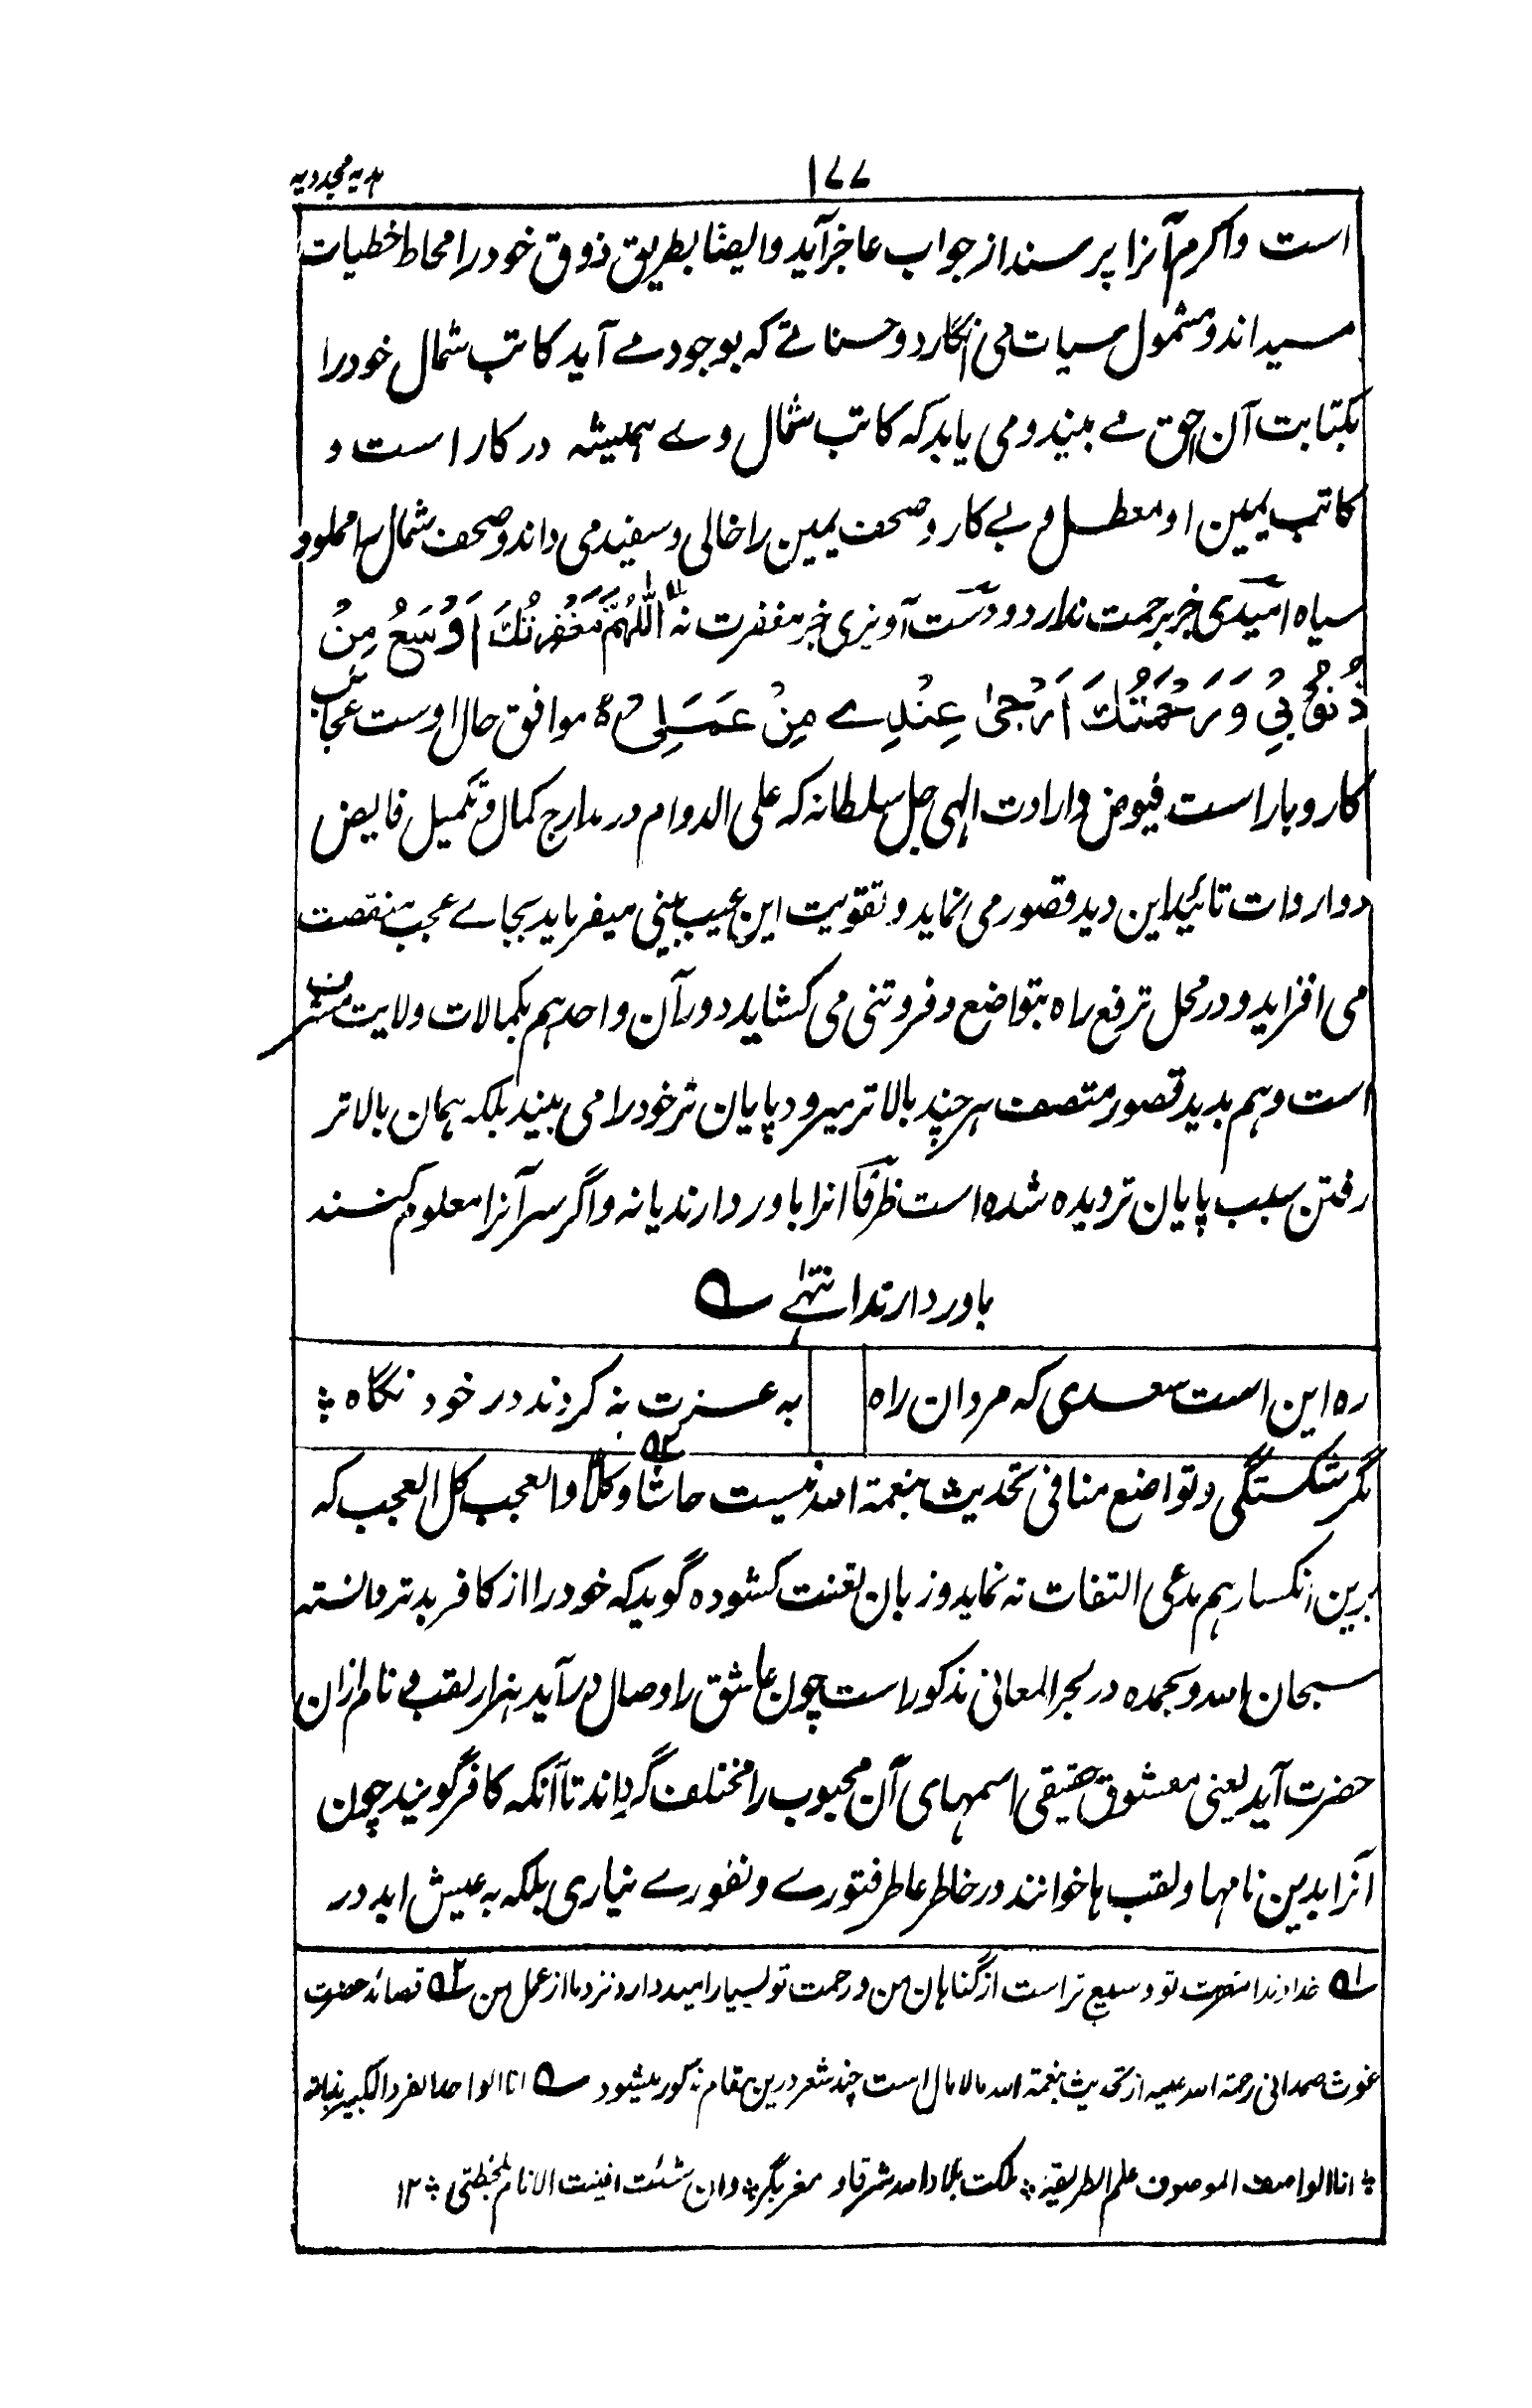 ۱۷۷
ہدیہ مجددیہ
است واگر سر آنرا پرسند از جواب عاجز آید و ایضا بطریق ذوق خود را محاط خطیات
میداند و مشمول سیات می انگارد و حسناتے کہ بوجود مے آید کاتب شمال خود را
بکتابت آن احق مے بیند و می یابد کہ کاتب شمال وے ہمیشہ در کار است و
کاتب یمین او معطل و بے کار و صحف یمین را خالی و سفید می داند و صحف شمال را مملو و
سیاہ امیدی جز برحمت ندارد و دست آویزی جز مغفرت نہ اَللّٰهُمَّ مَغْفِرَتُكَ اَوْسَعُ مِنْ
ذُنُوْبِيْ وَرَحْمَتُكَ اَرْجٰى عِنْدِے مِنْ عَمَلِی موافق حال اوست عجائب
کاروبار است فیوض وارادت الٰہی جل سلطانہ کہ علی الدوام در مدارج کمال و تکمیل فایض
و واردات تائید این دید قصور می نماید و تقویت این عیب بینی میفرماید بجاے عجب منقصت
می افزاید و در محل ترفع راہ بتواضع و فروتنی می کشاید در آن واحد ہم بکمالات ولایت مشرف
است و ہم بدید قصور متصف ہر چند بالاتر میرود پایان تر خود را می بیند بلکہ ہمان بالاتر
رفتن سبب پایان تر دیدہ شدہ است ظرفا انرا باور دارند یا نہ واگر سر آنرا معلوم کنند
باور دارند انتہے ؎
رہ این است سعدی کہ مردان راہ
بہ عزت نہ کردند در خود نگاہ ؞
مگر شکستگی و تواضع منافی تحدیث بنعمۃ اللہ نیست حاشا و کلا ۲؎ والعجب کل العجب کہ
برین انکسار ہم مدعی التفات نہ نماید و زبان بعنت کشودہ گوید کہ خود را از کافر بدتر دانستہ
سبحان اللہ وبحمدہ در بحر المعانی مذکور است چون عاشق را وصال در آید ہزار لقب و نام ازان
حضرت آید یعنی معشوق حقیقی اسمہای آن محبوب را مختلف گرداند تا آنکہ کافر گویند چون
آنرا بدین نامہا و لقب ہا خوانند در خاطر عاطر فتورے و نفورے نیاری بلکہ بہ عیش ابد در
۱؎ خداوندا مغفرت تو وسیع تر است از گناہان من و رحمت تو بسیار امید دارد نزد ما از عمل من ۲؎ قصائد حضرت
غوث صمدانی رحمۃ اللہ علیہ از تحدیث بنعمۃ اللہ مالامال است چند شعر درین مقام مذکور میشود ؎ انا الواحد الفرد الکبیر بذاتہ
؞ انا الواصف الموصوف علم الطریقۃ ؞ ملکت بلاد اللہ شرقا و مغربا ؞ وان شئت افنیت الانام بلحظتی ؞ ۱۲